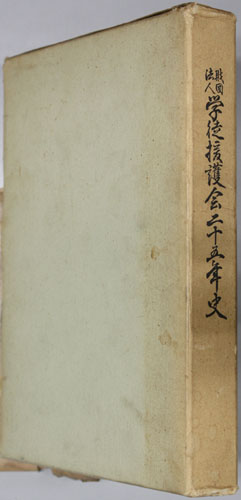 財団法人
学徒援護会二十五年史